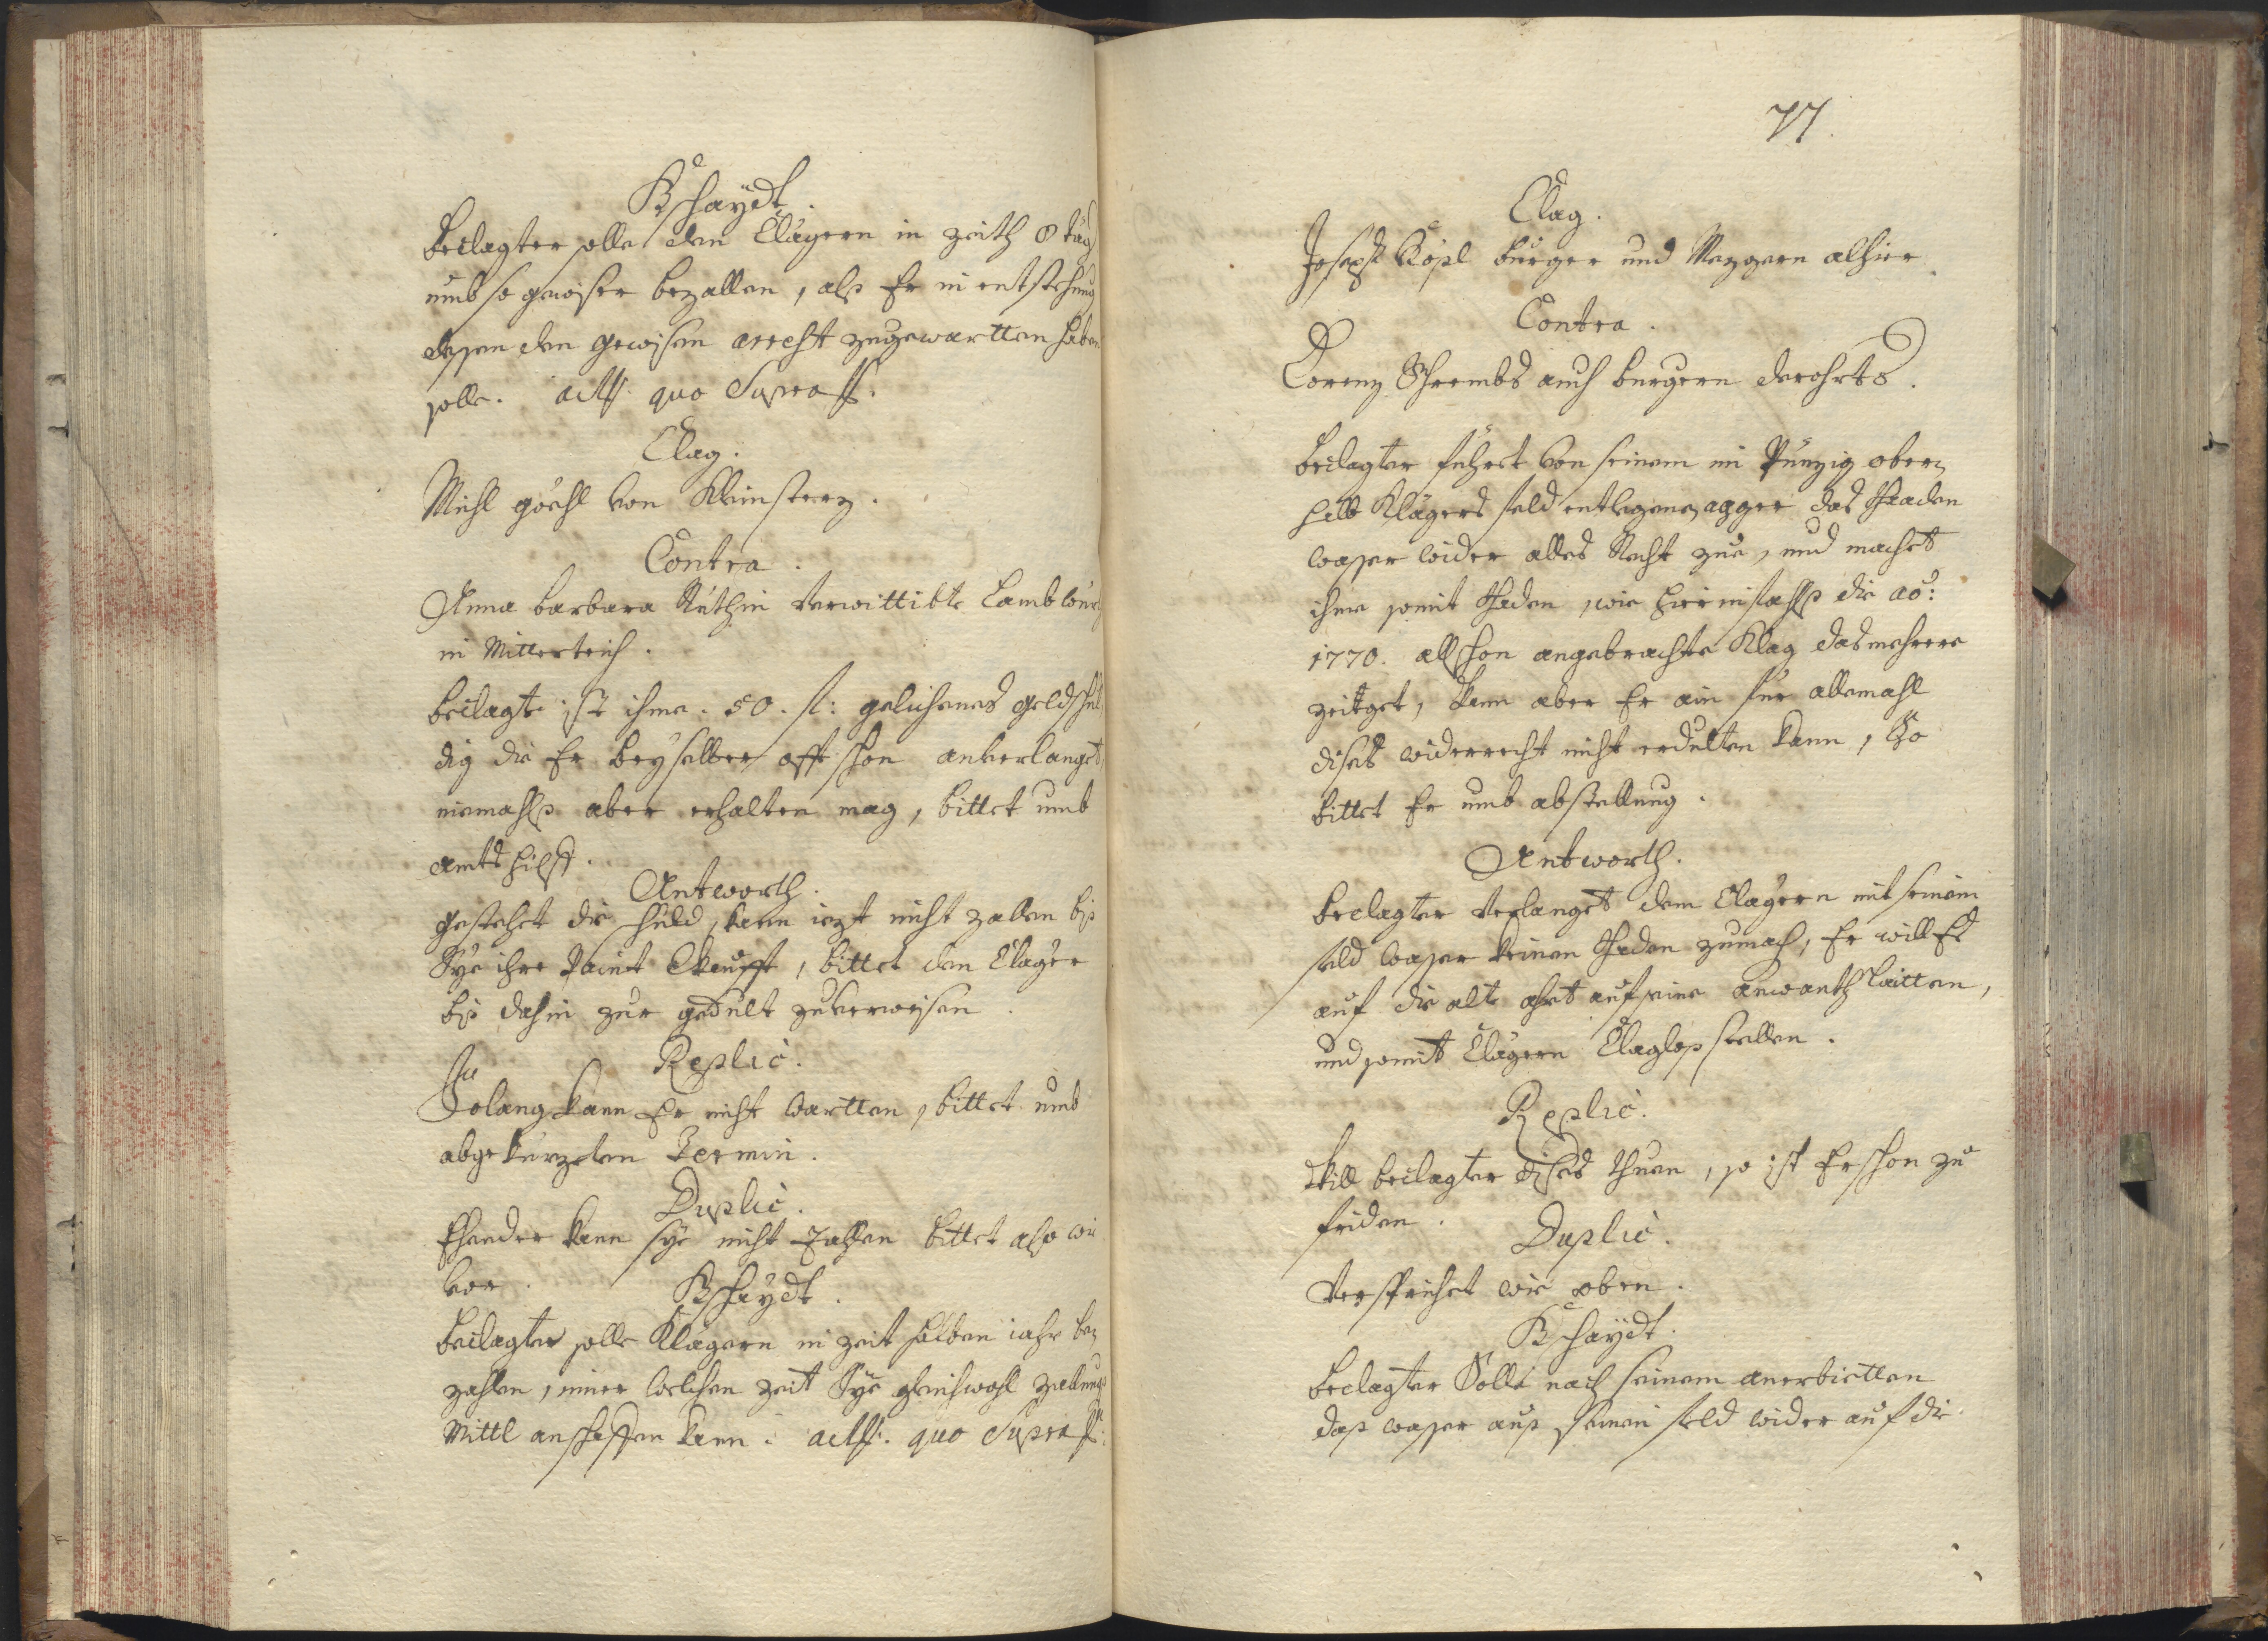 Bschaydt.
Beclagter solle den Clägern in zeith 8 täg
umb so gewiser bezallen, als Er in entstehung
dessen den gewisen arrest zugewartten haben
solle. act. quo Supra.
Clag.
Michl göchl von Kleinsterz.
Contra.
Anna barbara Rüthin verwittibte Lambwürth
in Mitterteich.
beclagte ist ihme. 50. f: gelichenes geld schul
dig die Er bey selber offt schon anverlanget,
niemahls aber erhalten mag, bittet umb
amts hilff.
Antworth.
gestehet die schuld, kann iezt nicht zallen bis
Sye ihre verkaufft, bittet den Clager
bis dahin zur gedult zuverweisen.
Replic.
So lang kann Er nicht wartten, bittet umb
abgekürzten Termin.
Duplic.
Ehender kann sye nicht Zallen bittet also wie
vor.
Bschaydt.
Beclagter solle Klägern in zeit halben iahr be,
zahlen, inner welchen zeit Sye gleichwohl zallungs
Mittl anschaffen kann. act. quo Supra.
77.
Clag.
Joseph Köpl burger und Mezgern alhier
Contra.
Lorenz Schrembs auch burgern derohrts.
Beclagter führet von seinem im obern,
halb Klägers feld entlegenen agger das
wasser wider alles Recht zue, und machet
ihme somit schaden, wie hierinfahls die ao:
1770. all schon angebrachte Klag das mehrere
zeiget, kann aber Er ain für allemahl
dises widerrecht nicht erdulten kann, So
bittet Er umb abstellung.
Antworth.
Beclagter verlanget dem Clägern mit seinem
feld wasser keinen schaden zumach, Er will Es
auf die alte ahrt auf seine anwanth laitten,
und somit Clägern Claglos stellen.
Replic.
Will beclagter dises thuen, so ist Er schon zu
friden.
Duplic.
Versprichet wie oben.
Bschaydt.
Beclagter Solle nach seinem anerbietten
das wasser aus seinem feld wider auf die